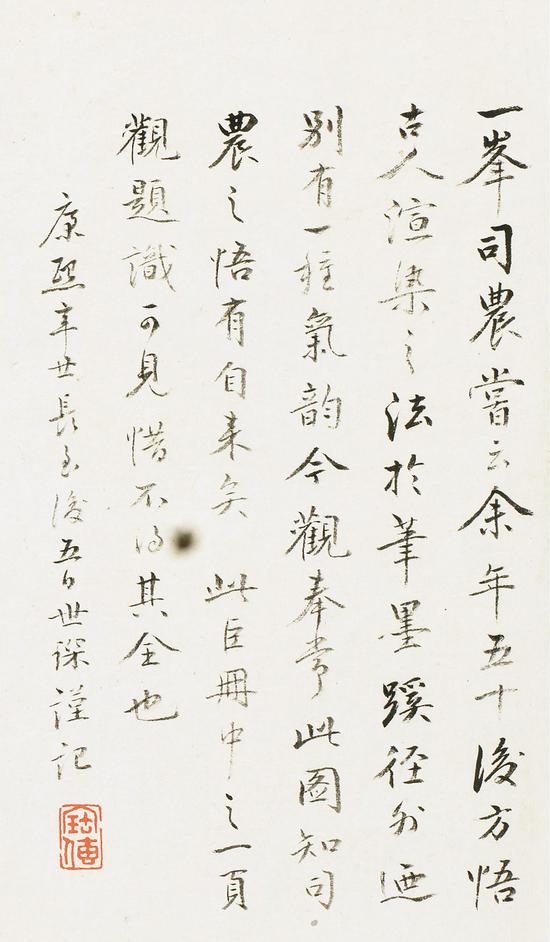 一峯司農嘗云余年五十後方悟
古人渲染之法於筆墨蹊徑外迺
别有一種氣韵今觀奉常此圖知司
農之悟有自来矣 此巨冊中之一頁
觀題識可見惜不得其全也
康熙辛丑長至後五日世琛謹記